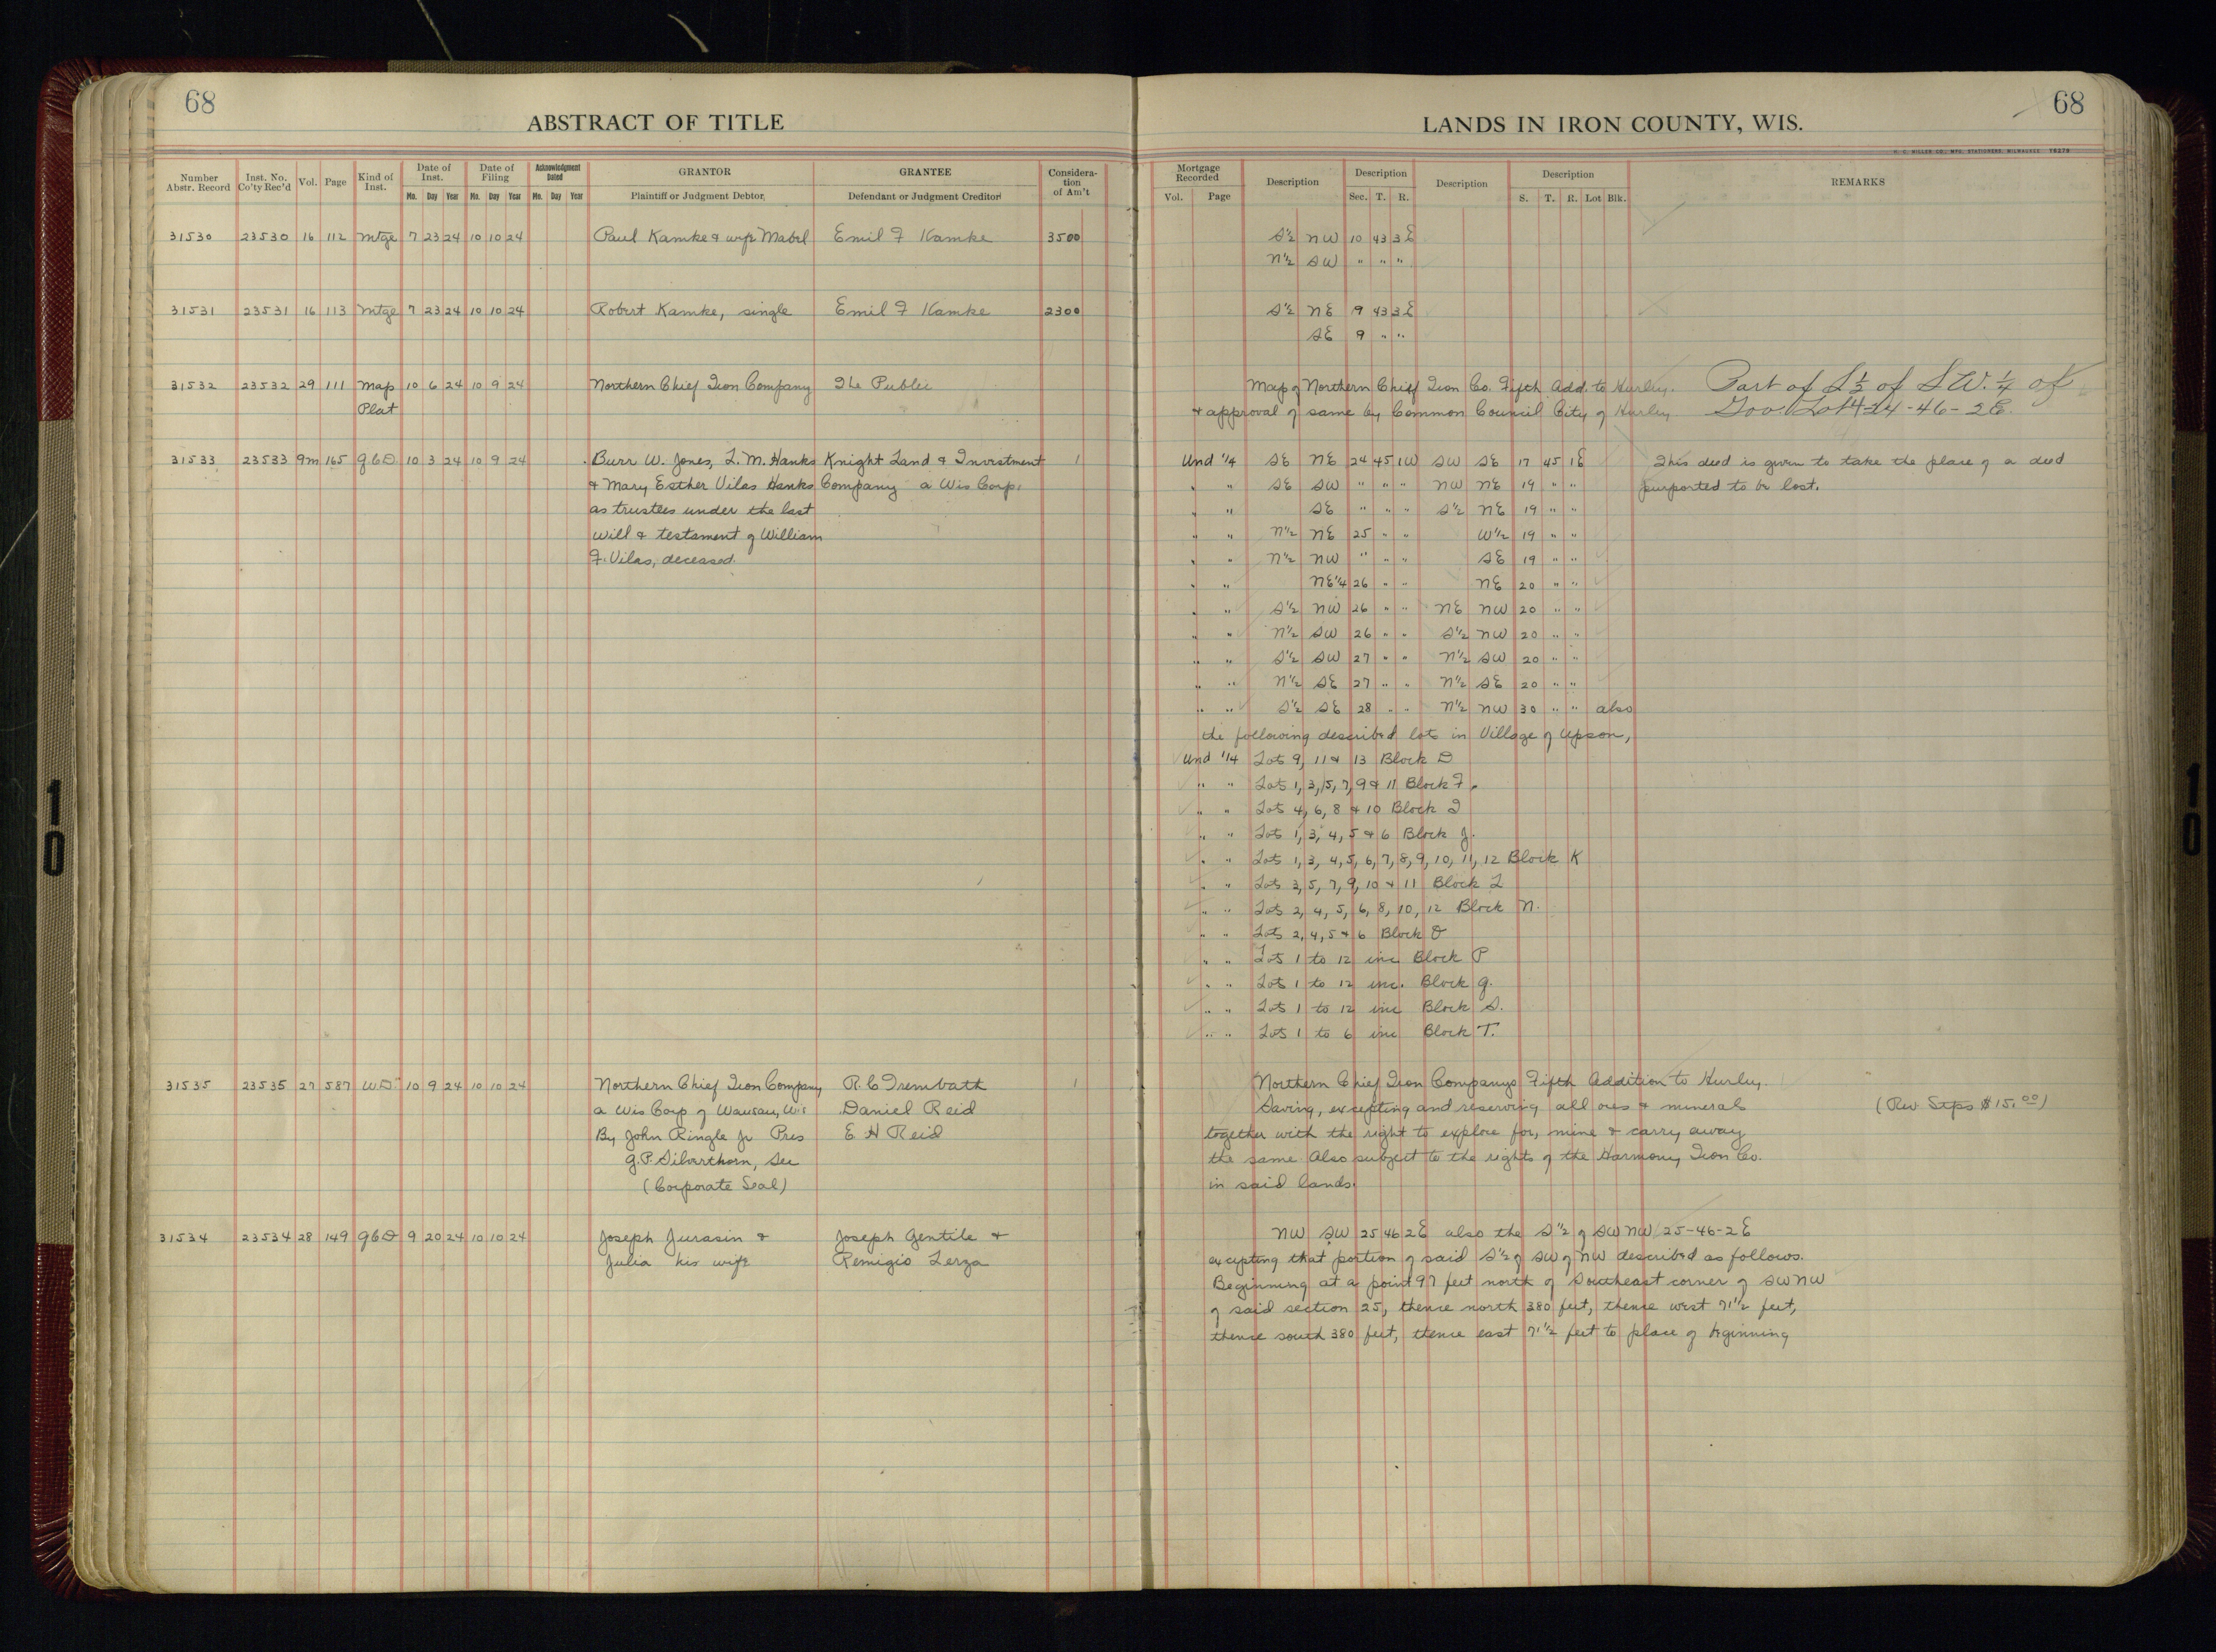 68
ABSTRACT OF TITLE
Number Abstr. Record | Inst. No. Co'ty Rec'd | Vol. | Page | Kind of Inst. | Date of Inst. Mo. Day Year | Date of Filing Mo. Day Year | Acknowledgment Dated Mo. Day Year | GRANTOR Plaintiff or Judgment Debtor, | GRANTEE Defendant or Judgment Creditor | Considera-tion of Am't
31530 23530 16 112 Mtge 7 23 24 10 10 24 Paul Kamke & wife Mabel Emil F Kamke 3500
31531 23531 16 113 Mtge 7 23 24 10 10 24 Robert Kamke, single Emil F Kamke 2300
31532 23532 29 111 Map 10 6 24 10 9 24 Northern Chief Iron Company The Public
Plat
31533 23533 9m 165 QCD 10 3 24 10 9 24 Burr W. Jones, L. M. Hanks Knight Land & Investment 1
& Mary Esther Vilas Hanks Company a Wis Corp.
as trustees under the last
will & testament of William
F. Vilas, deceased.
31535 23535 27 587 WD 10 9 24 10 10 24 Northern Chief Iron Company, R. C Trembath 1
a Wis Corp of Wausau, Wis Daniel Reid
By John Ringle Jr Pres E H Reid
G. P. Silverthorn, Sec
(Corporate Seal)
31534 23534 28 149 QCD 9 20 24 10 10 24 Joseph Jurasin & Joseph Gentile &
Julia his wife Remigio Lerza
68
LANDS IN IRON COUNTY, WIS.
H. C. MILLER CO., MFG. STATIONERS, MILWAUKEE
Mortgage Recorded Vol. Page | Description | Description Sec. T. R. | Description | Description S. T. R. Lot Blk. | REMARKS
S½ NW 10 43 3E
N½ SW " " "
S½ NE 9 43 3E
SE 9 " "
Map of Northern Chief Iron Co. Fifth Add. to Hurley. Part of S ½ of S W. ¼ of
& approval of same by Common Council City of Hurley Gov. Lot 4-24-46-2E.
Und ¼ SE NE 24 45 1W SW SE 17 45 1E This deed is given to take the place of a deed
" " SE SW " " " NW NE 19 " " purported to be lost.
" " SE " " " S½ NE 19 " "
" " N½ NE 25 " " W½ 19 " "
" " N½ NW " " " SE 19 " "
" " NE¼ 26 " " NE 20 " "
" " S½ NW 26 " " NE NW 20 " "
" " N½ SW 26 " " S½ NW 20 " "
" " S½ SW 27 " " N½ SW 20 " "
" " N½ SE 27 " " N½ SE 20 " "
" " S½ SE 28 " " N½ NW 30 " " also
the following described lots in Village of Upson,
Und ¼ Lots 9, 11 & 13 Block D
" " Lots 1, 3, 5, 7, 9 & 11 Block F.
" " Lots 4, 6, 8 & 10 Block I
" " Lots 1, 3, 4, 5 & 6 Block J.
" " Lots 1, 3, 4, 5, 6, 7, 8, 9, 10, 11, 12 Block K
" " Lots 3, 5, 7, 9, 10 & 11 Block L
" " Lots 2, 4, 5, 6, 8, 10, 12 Block N.
" " Lots 2, 4, 5 & 6 Block O
" " Lots 1 to 12 inc Block P
" " Lots 1 to 12 inc. Block Q.
" " Lots 1 to 12 inc Block S.
" " Lots 1 to 6 inc Block T.
Northern Chief Iron Companys Fifth Addition to Hurley.
Saving, excepting and reserving all ores & mineral (Rev Stps $15.00)
together with the right to explore for, mine & carry away
the same Also subject to the rights of the Harmony Iron Co.
in said lands.
NW SW 25 46 2E also the S½ of SW NW 25-46-2E
excepting that portion of said S½ of SW of NW described as follows.
Beginning at a point 97 feet north of Southeast corner of SW NW
of said section 25, thence north 380 feet, thence west 71½ feet,
thence south 380 feet, thence east 71½ feet to place of beginning
10
10